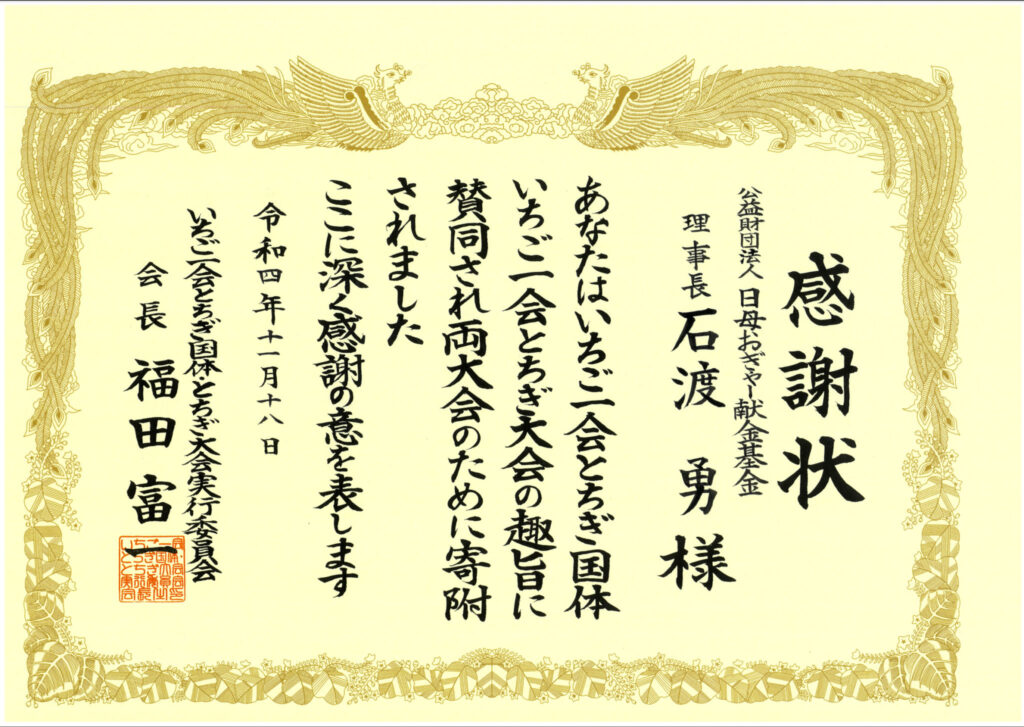 感謝状
公益財団法人 日母おぎゃー献金基金
理事長 石渡 勇 様
あなたはいちご一会とちぎ国体
いちご一会とちぎ大会の趣旨に
賛同され両大会のために寄附
されました
ここに深く感謝の意を表します
令和四年十一月十八日
いちご一会とちぎ国体とちぎ大会実行委員会
会長 福田富一